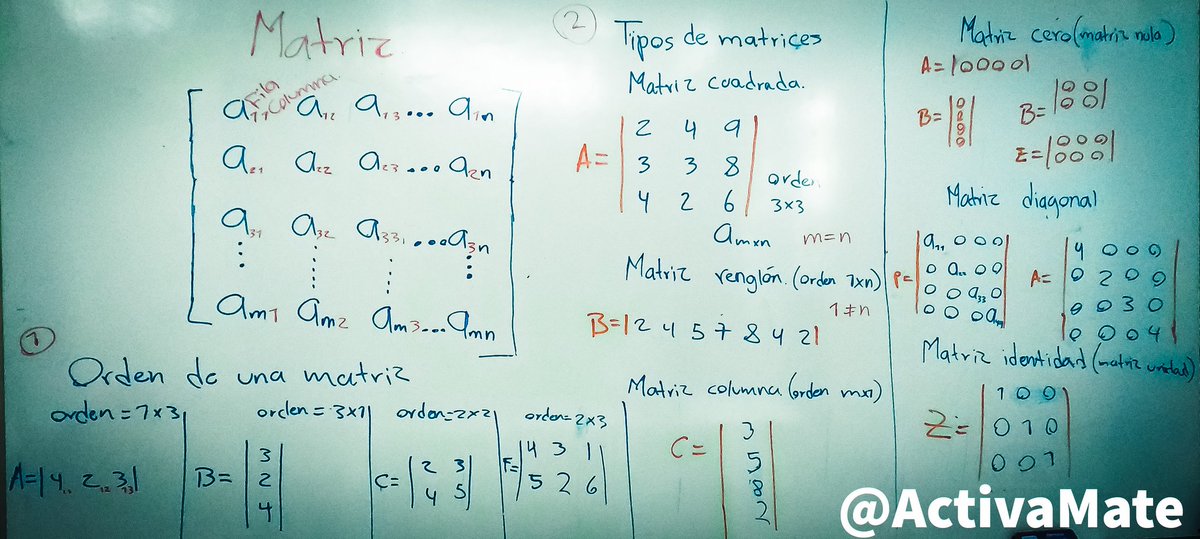 Matriz
Fila
Columna
a11 a12 a13 ... a1n
a21 a22 a23 ... a2n
a31 a32 a33 ... a3n
am1 am2 am3 ... amn
1
Orden de una matriz
orden = 1x3
A=|4 2 3|
orden = 3x1
B= |3
2
4|
orden=2x2
C= |2 3
4 5|
orden=2x3
F= |4 3 1
5 2 6|
2
Tipos de matrices
Matriz cuadrada.
A= |2 4 9
3 3 8
4 2 6|
orden
3x3
amxn m=n
Matriz renglón. (orden 1xn)
1≠n
B=|2 4 5 7 8 4 2|
Matriz columna (orden mx1)
C= |3
5
8
2|
Matriz cero (matriz nula)
A=|0 0 0 0|
B= |0
0
0
0|
B= |0 0
0 0|
E= |0 0 0
0 0 0|
Matriz diagonal
P= |a11 0 0 0
0 a22 0 0
0 0 a33 0
0 0 0 |
A= |4 0 0 0
0 2 0 0
0 0 3 0
0 0 0 4|
Matriz identidad (matriz unidad)
Z= |1 0 0
0 1 0
0 0 1|
@ActivaMate